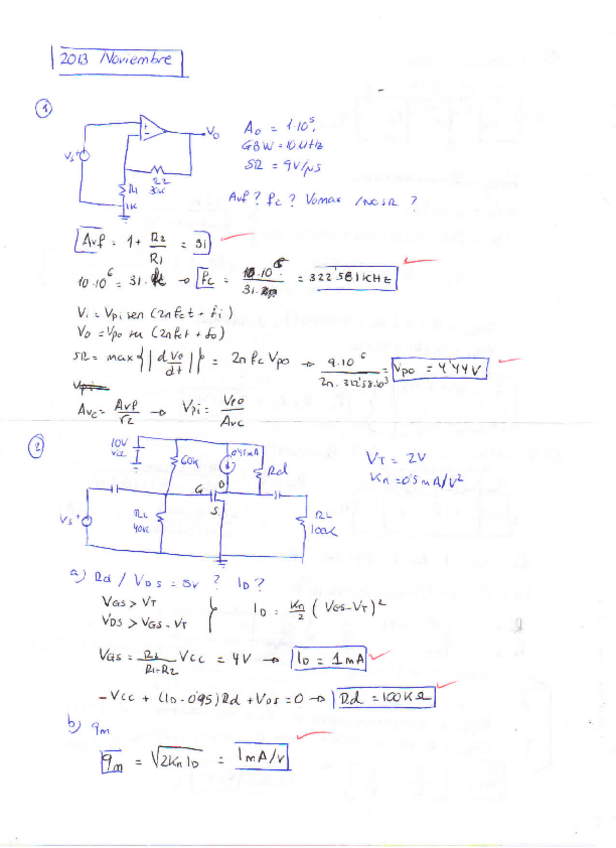 2013 Noviembre
1
A0 = 1·10^5.
GBW = 10 MHz
SR = 9V/μS
Vs +
V0
R2
30K
R1
1K
Avf? fc? Vomax / no SR ?
Avf = 1 + R2/R1 = 31
10·10^6 = 31· fc → fc = 10·10^6/31 = 322'581 KHz
Vi = Vpi sen (2πfct + fi)
Vo = Vpo sen (2πfct + fo)
SR = max{|dVo/dt|} = 2πfc Vpo → 9·10^6/2π·312'58·10^3 = Vpo = 4'44V
Vpi
Avc = Avf/√2 → Vpi = Vpo/Avc
2
10V
Vcc
60K
0'95mA
Rd
G
D
S
Vs +
RL
40K
RL
100K
VT = 2V
Kn = 0'5mA/V²
a) Rd / VDS = 5V ? ID?
VGS > VT
VDS > VGS - VT
ID = Kn/2 (VGS-VT)²
VGS = R1/R1-R2 VCC = 4V → ID = 1mA
-VCC + (ID - 0'95)Rd + VDS = 0 → Rd = 100KΩ
b) gm
gm = √2KnID = 1mA/V